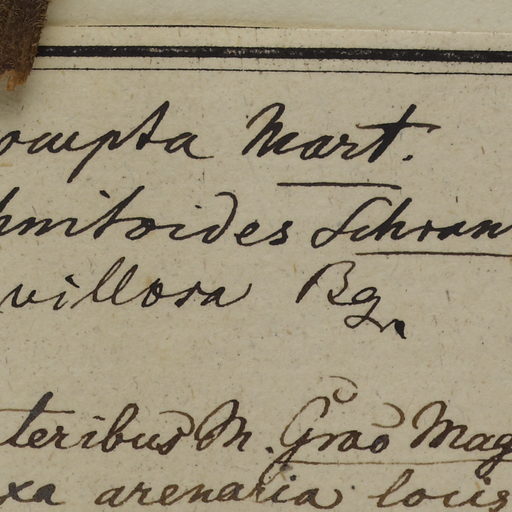 ocupta Mart.
hnitoides Schran
villosa Bg.
teribus M. Grão Mag
xa arenaria locis